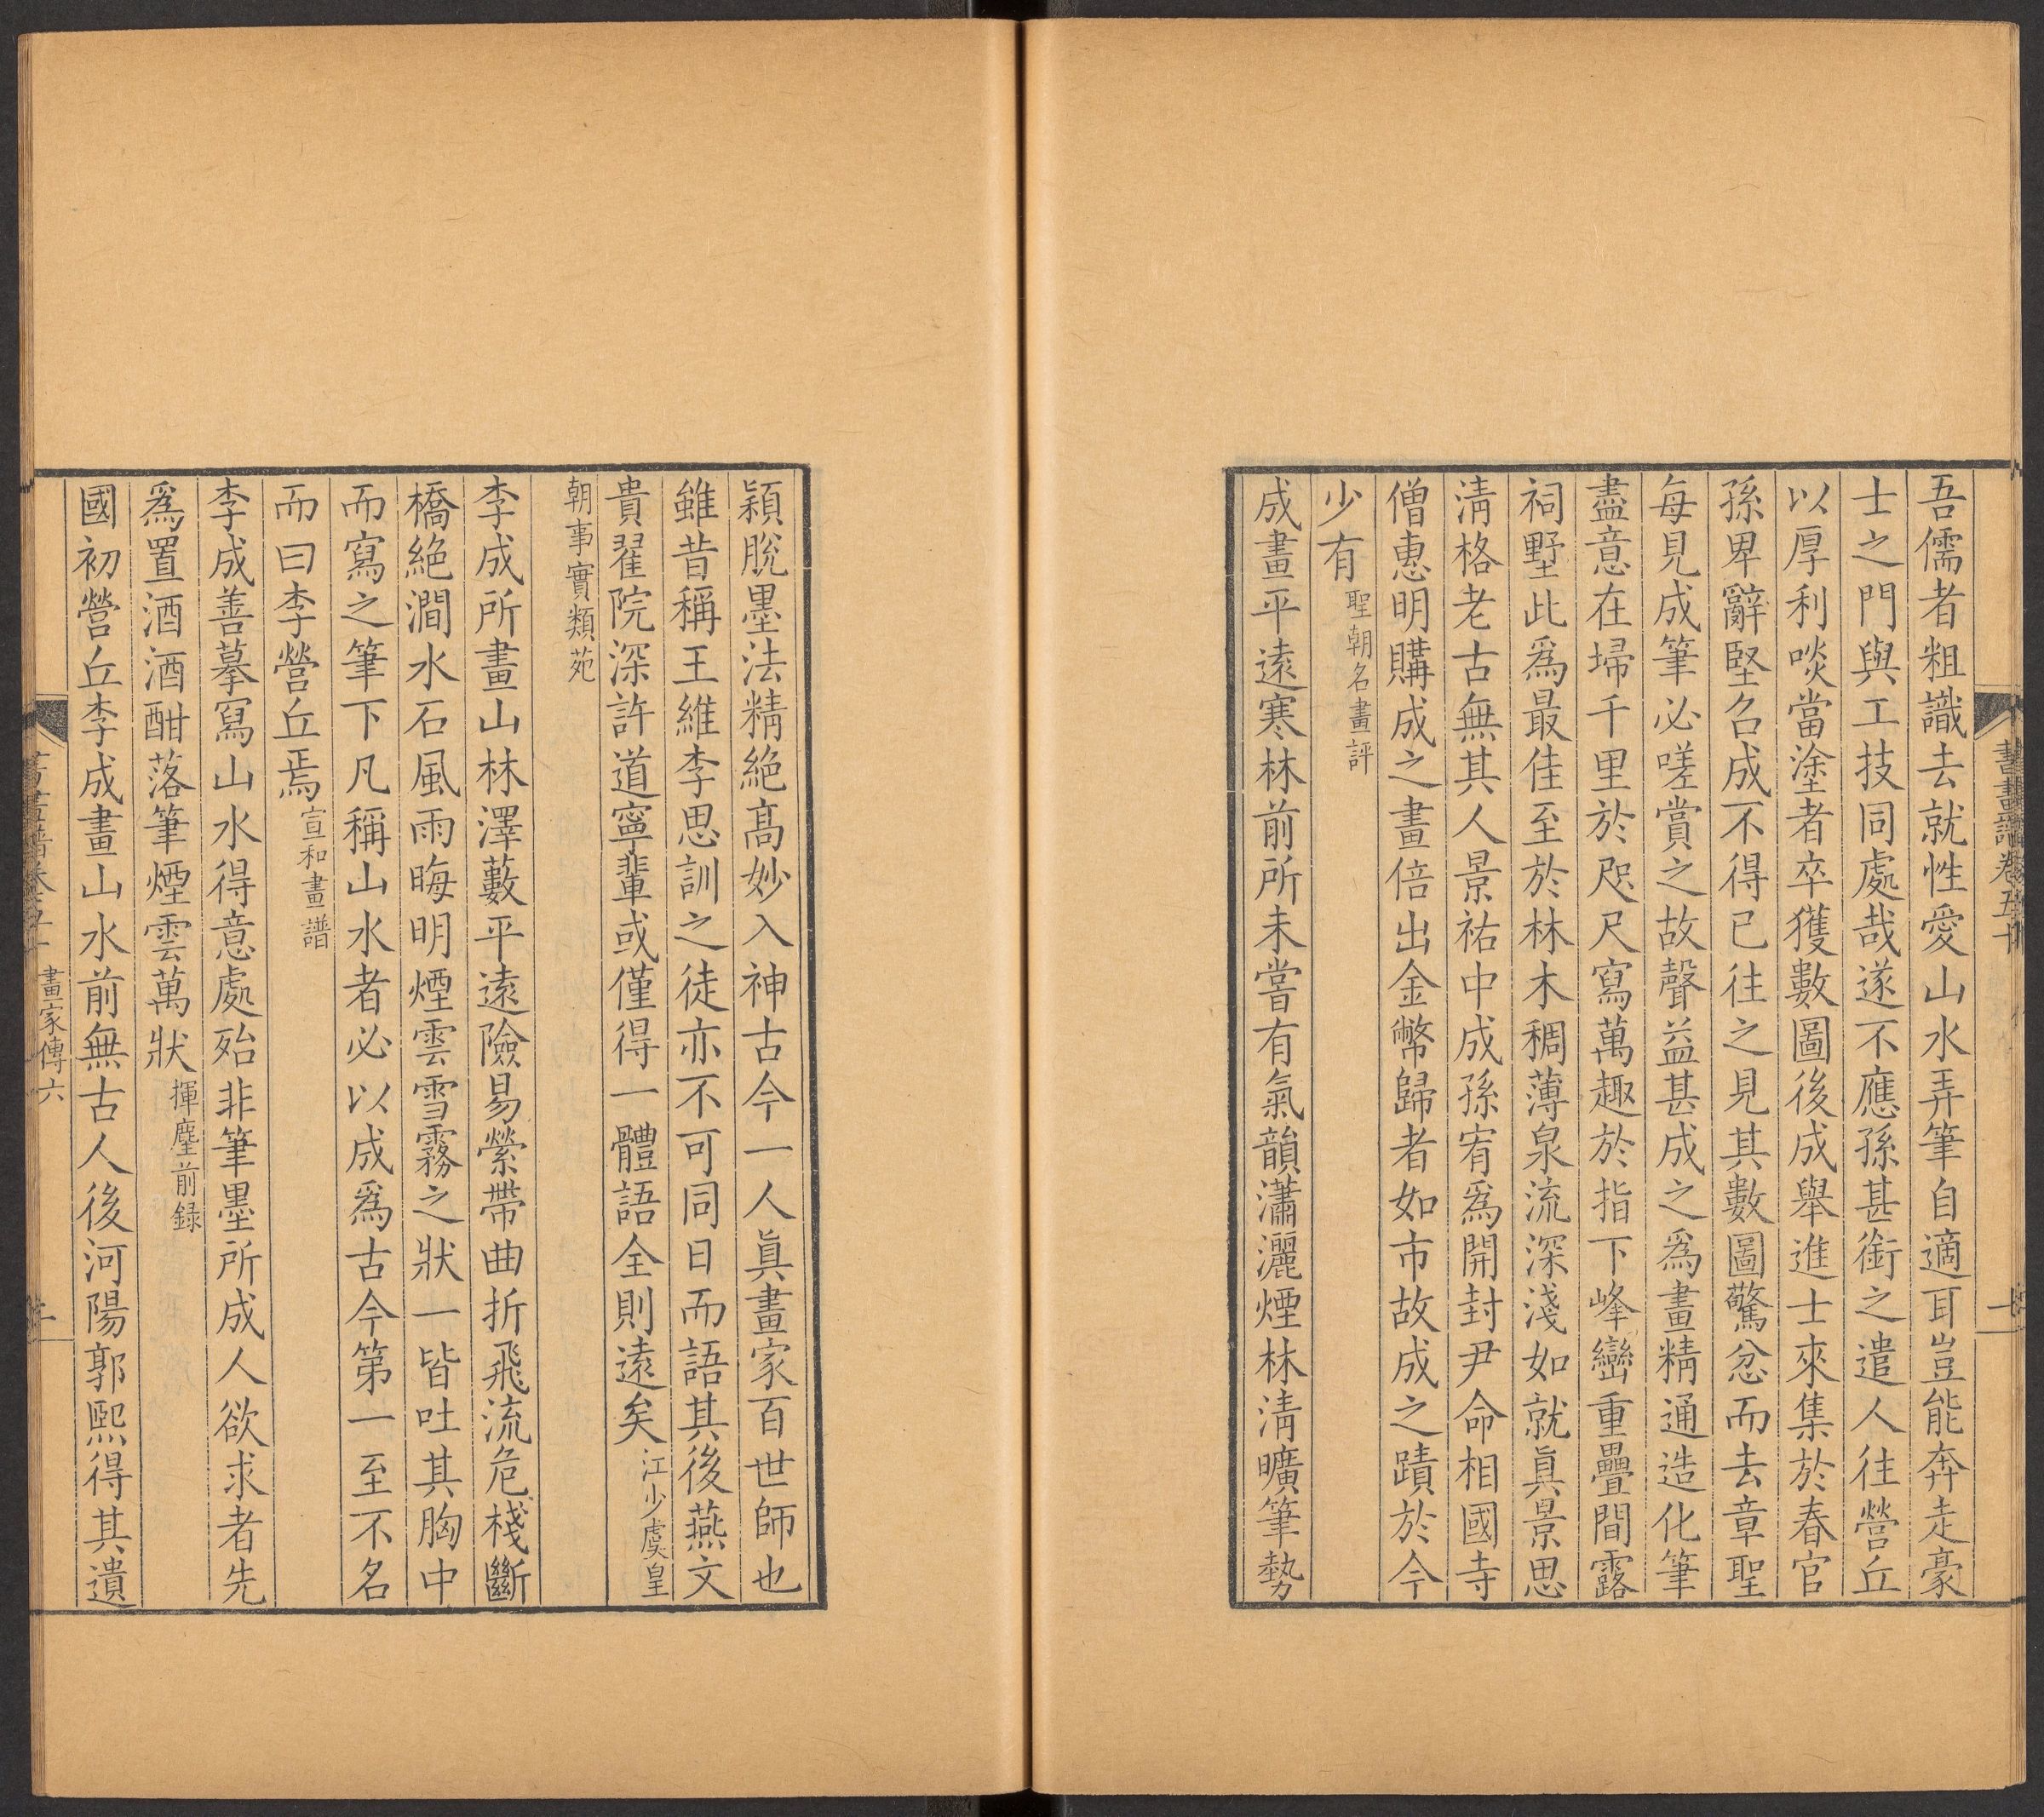 書畫譜卷五十
一
吾儒者粗識去就性愛山水弄筆自適耳豈能奔走豪
士之門與工技同處哉遂不應孫甚銜之遣人往營丘
以厚利啖當塗者卒獲數圖後成舉進士來集於春官
孫卑辭堅召成不得已往之見其數圖驚忿而去章聖
每見成筆必嗟賞之故聲益甚成之爲畫精通造化筆
盡意在埽千里於咫尺寫萬趣於指下峰巒重疊間露
祠墅此爲最佳至於林木稠薄泉流深淺如就眞景思
淸格老古無其人景祐中成孫宥爲開封尹命相國寺
僧惠明購成之畫倍出金幣歸者如市故成之蹟於今
少有聖朝名畫評
成畫平遠寒林前所未嘗有氣韻瀟灑煙林淸曠筆勢
穎脫墨法精絶高妙入神古今一人眞畫家百世師也
雖昔稱王維李思訓之徒亦不可同日而語其後燕文
貴翟院深許道寧輩或僅得一體語全則遠矣江少虞皇
朝事實類苑
李成所畫山林澤藪平遠險易縈帶曲折飛流危棧斷
橋絶澗水石風雨晦明煙雲雪霧之狀一皆吐其胸中
而寫之筆下凡稱山水者必以成爲古今第一至不名
而曰李營丘焉宣和畫譜
李成善摹寫山水得意處殆非筆墨所成人欲求者先
爲置酒酒酣落筆煙雲萬狀揮塵前録
國初營丘李成畫山水前無古人後河陽郭熙得其遺
畫家傳六